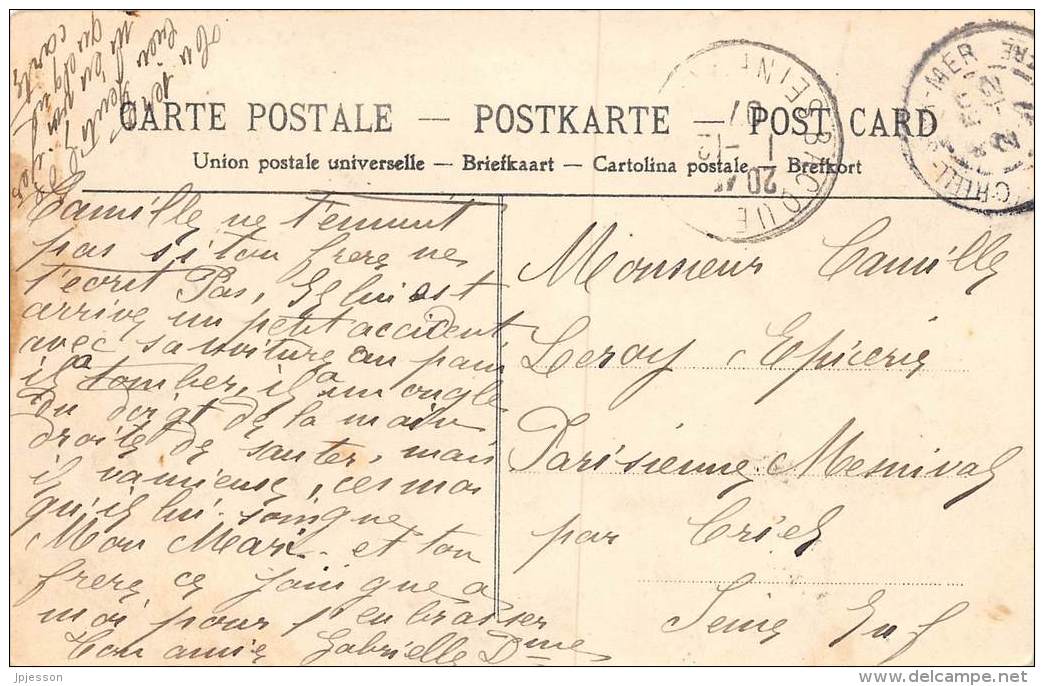 CARTE POSTALE — POSTKARTE — POST CARD
Union postale universelle — Briefkaart — Cartolina postale — Brefkort
Camille ne t'ennuit
pas si ton frere ne
t'ecrit Pas, il lui est
arrive un petit accident
avec sa voiture au pain
il a tomber, il a un ongle
du doigt de la main
droite de sauter, mais
il va mieux, ces moi
qu'il lui soingne
Mon Mari et ton
frere ce joingne a
moi pour t'enbrasser
Ton amie Gabrielle Dme
Monsieur Camille
Leroy Epicerie
Parisienne Mesnival
par Criel
Seine Inf
BICQUE
SEINE
20
CRIEL-SUR-MER
jpjesson
delcampe.net